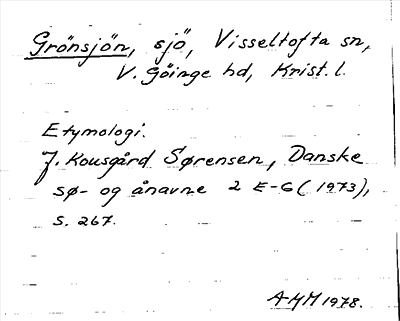 Grönsjön, sjö, Visseltofta sn,
V. Göinge hd, Krist. l.
Etymologi.
J. Kousgård Sørensen, Danske
sø- og ånavne 2 E-G (1973),
s. 267.
AHM 1978.